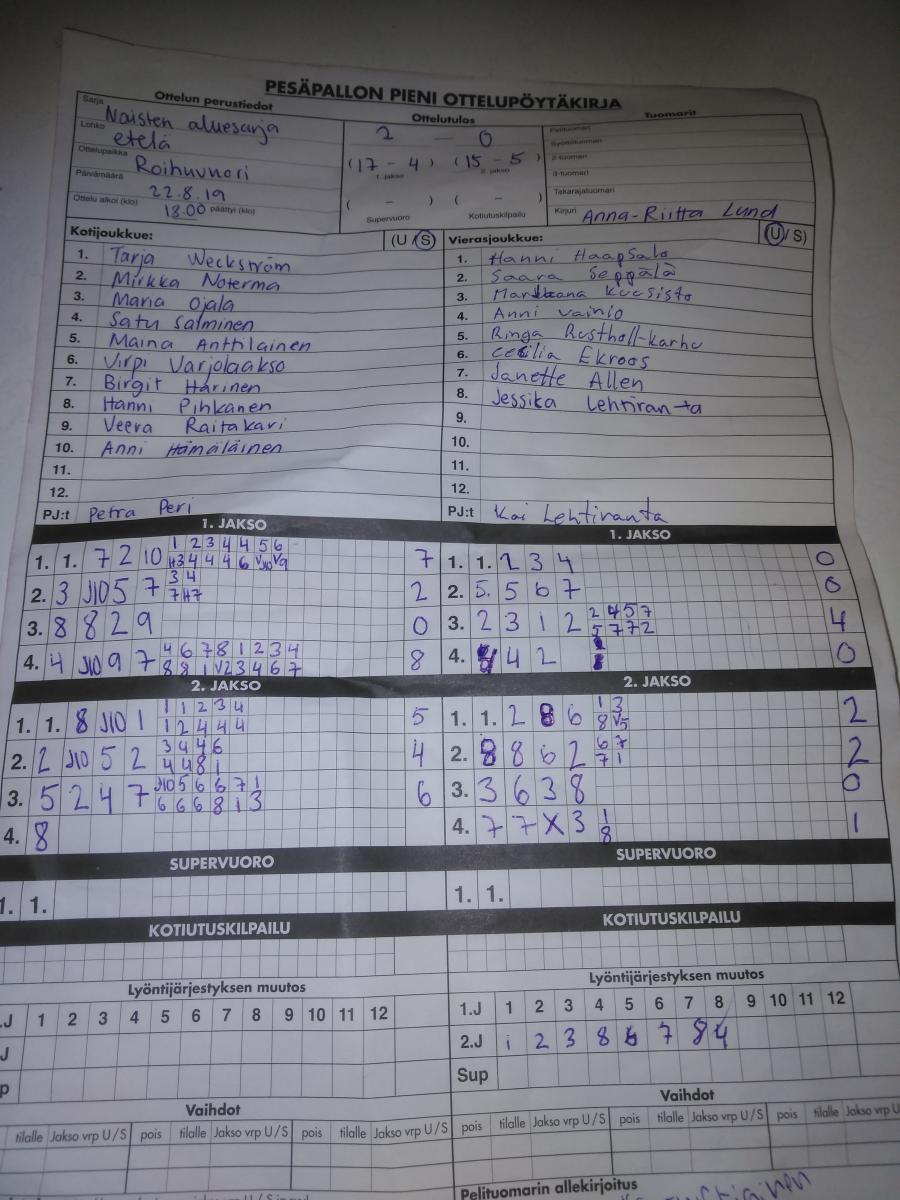 PESÄPALLON PIENI OTTELUPÖYTÄKIRJA
Ottelun perustiedot
Sarja Naisten aluesarja
Lohko etelä
Ottelupaikka Roihuvuori
Päivämäärä 22.8.19
Ottelu alkoi (klo) 18.00 päättyi (klo)
Ottelutulos
2 — 0
(17 - 4) (15 - 5)
1. jakso 2. jakso
( - ) ( - )
Supervuoro Kotiutuskilpailu
Tuomarit
Pelituomari
Syöttötuomari
2-tuomari
3-tuomari
Takarajatuomari
Kirjuri Anna-Riitta Lund
Kotijoukkue: (U/S)
1. Tarja Weckström
2. Mirkka Noterma
3. Maria Ojala
4. Satu Salminen
5. Maina Anttilainen
6. Virpi Varjolaakso
7. Birgit Harinen
8. Hanni Pihkanen
9. Veera Raitakari
10. Anni Hämäläinen
11.
12.
PJ:t Petra Peri
Vierasjoukkue: (U/S)
1. Hanni Haapsalo
2. Saara Seppälä
3. Kuusisto
4. Anni Vainio
5. Ringa Rusthall-karhu
6. Cecilia Ekroos
7. Janette Allen
8. Jessika Lehtiranta
9.
10.
11.
12.
PJ:t Kai Lehtiranta
1. JAKSO
1. 1. 7 2 10 1 2 3 4 4 5 6 7
2. 3 J10 5 7 3 4 2
7 H7
3. 8 8 2 9 0
4. 4 J10 9 7 4 6 7 8 1 2 3 4 8
8 8 1 V2 3 4 6 7
1. JAKSO
1. 1. 2 3 4 0
2. 5. 5 6 7 0
3. 2 3 1 2 2 4 5 7 4
5 7 7 2
4. 4 2 0
2. JAKSO
1. 1. 8 J10 1 1 1 2 3 4 5
1 2 4 4 4
2. 2 J10 5 2 3 4 4 6 4
4 4 8 1
3. 5 2 4 7 J10 5 6 6 7 1 6
6 6 6 8 1 3
4. 8
2. JAKSO
1. 1. 2 8 6 1 3 2
8 V5
2. 8 8 6 2 6 7 2
7 1
3. 3 6 3 8 0
4. 7 7 X 3 1 1
8
SUPERVUORO
1. 1.
SUPERVUORO
1. 1.
KOTIUTUSKILPAILU
KOTIUTUSKILPAILU
Lyöntijärjestyksen muutos
.J 1 2 3 4 5 6 7 8 9 10 11 12
J
p
Lyöntijärjestyksen muutos
1.J 1 2 3 4 5 6 7 8 9 10 11 12
2.J 1 2 3 8 6 7 8 4
Sup
Vaihdot
tilalle Jakso vrp U/S pois tilalle Jakso vrp U/S pois tilalle Jakso vrp U/S
Vaihdot
pois tilalle Jakso vrp U/S pois tilalle Jakso vrp U/S pois tilalle Jakso vrp U
Pelituomarin allekirjoitus